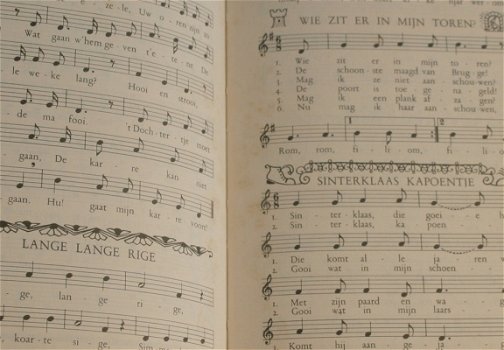 ze-le, Uw o-ren zijn
Wat gaan w'hem ge-ven t'e-ten? De
le we-ke lang? Hooi en strooi,
de ma fooi. 't Doch-ter-tje moet
gaan, De kar-re kan niet
gaan. Hu! gaat mijn kar-re voort!
LANGE LANGE RIGE
ge, lan-ge ri-ge,
koar-te si-ge,
WIE ZIT ER IN MIJN TOREN?
1. Wie zit er in mijn to-ren?
2. De schoon-ste maagd van Brug-ge!
3. Mag ik ze niet aan-schou-wen?
4. De poort is toe-ge-na-geld!
5. Mag ik een plank af-za-gen?
6. Nu mag ik haar aan-schou-wen,
1 2
Rom, rom, fi-le om, fi-le
SINTERKLAAS KAPOENTJE
1. Sin-ter-klaas, die goei-e
2. Sin-ter-klaas, ka-poen
1. Die komt al-le ja-ren
2. Gooi wat in mijn schoen-
1. Met zijn paard en wa-
2. Gooi wat in mijn laars
Komt hij aan-ge-ja